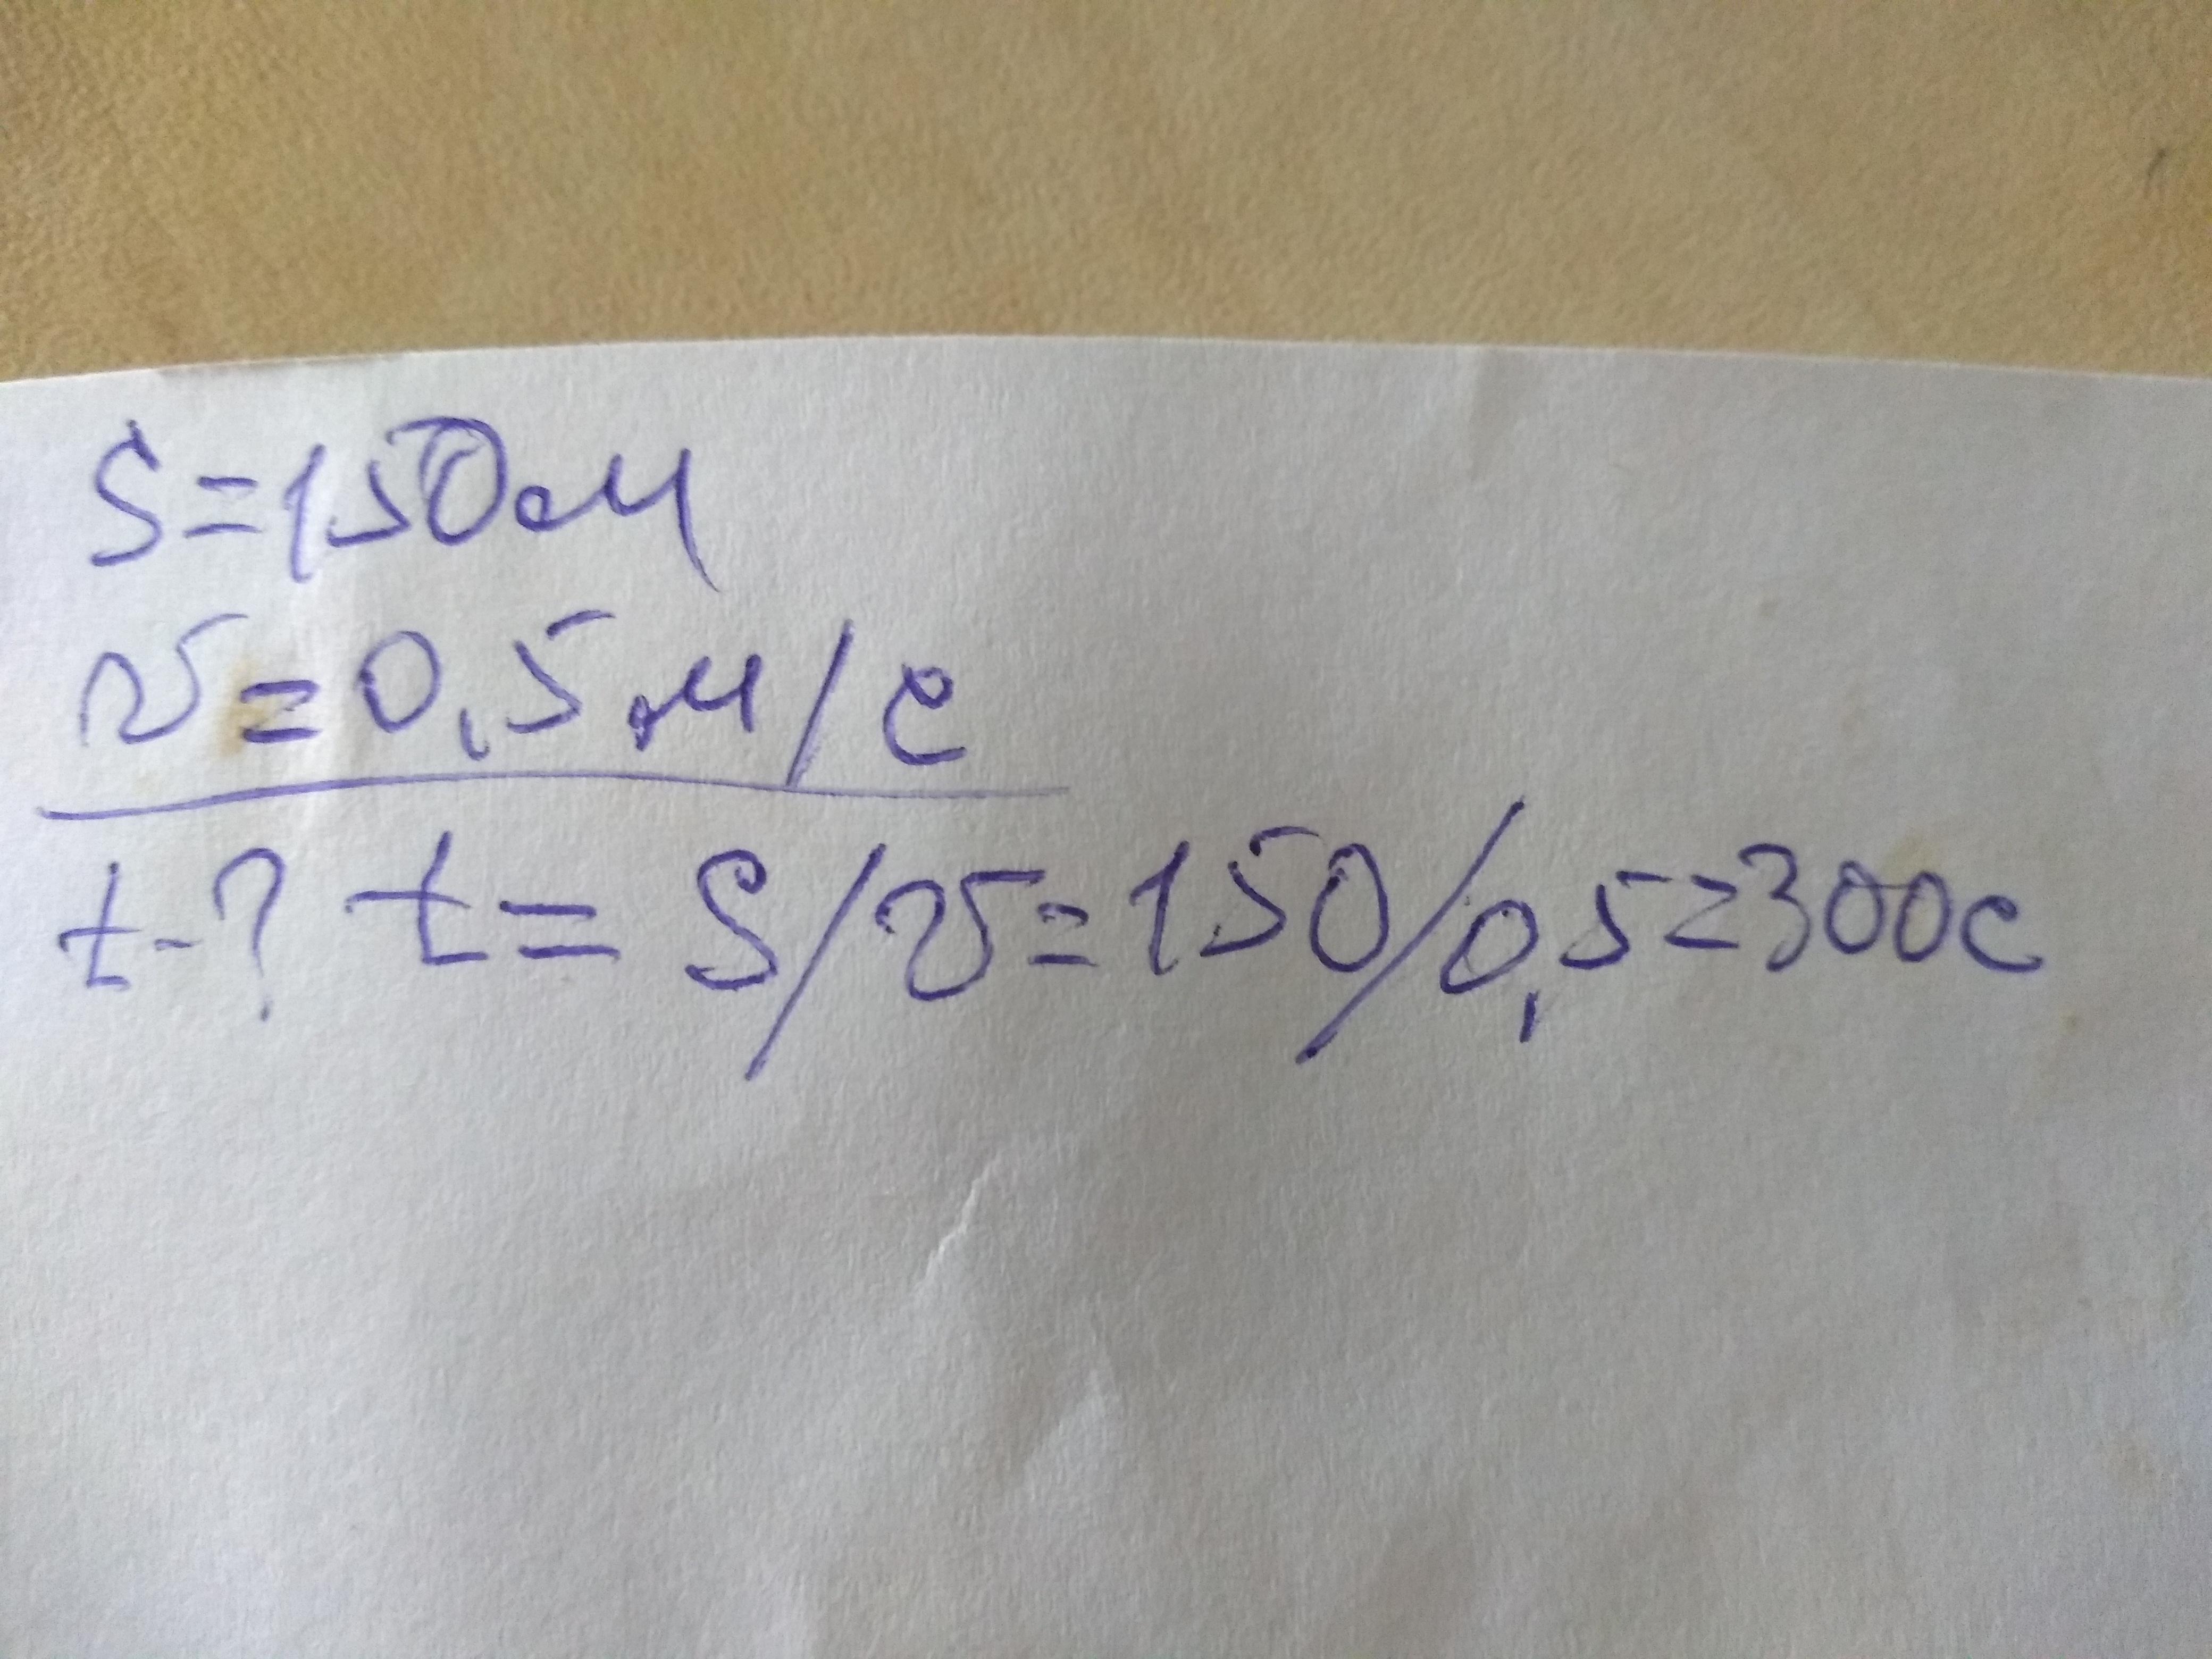 S=150м
v=0,5м/с
t-? t=S/v=150/0,5=300с